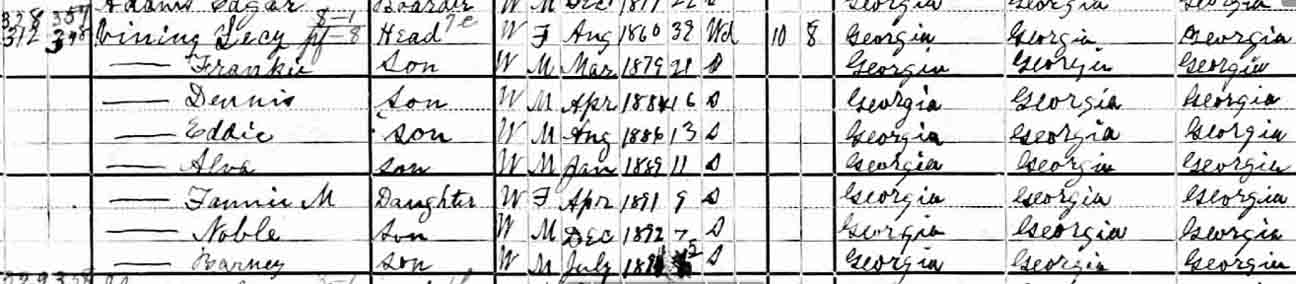 Adams Edgar Boarder W M Dec Georgia Georgia Georgia
Vining Lecy Head W F Aug 1860 39 Wd 10 8 Georgia Georgia Georgia
— Frankie Son W M Mar 1879 21 S Georgia Georgia Georgia
— Dennis Son W M Apr 1884 16 S Georgia Georgia Georgia
— Eddie Son W M Aug 1886 13 S Georgia Georgia Georgia
— Alva Son W M Jan 1889 11 S Georgia Georgia Georgia
— Fannie M Daughter W F Apr 1891 9 S Georgia Georgia Georgia
— Noble Son W M Dec 1892 7 S Georgia Georgia Georgia
— Barney Son W M July 5 S Georgia Georgia Georgia